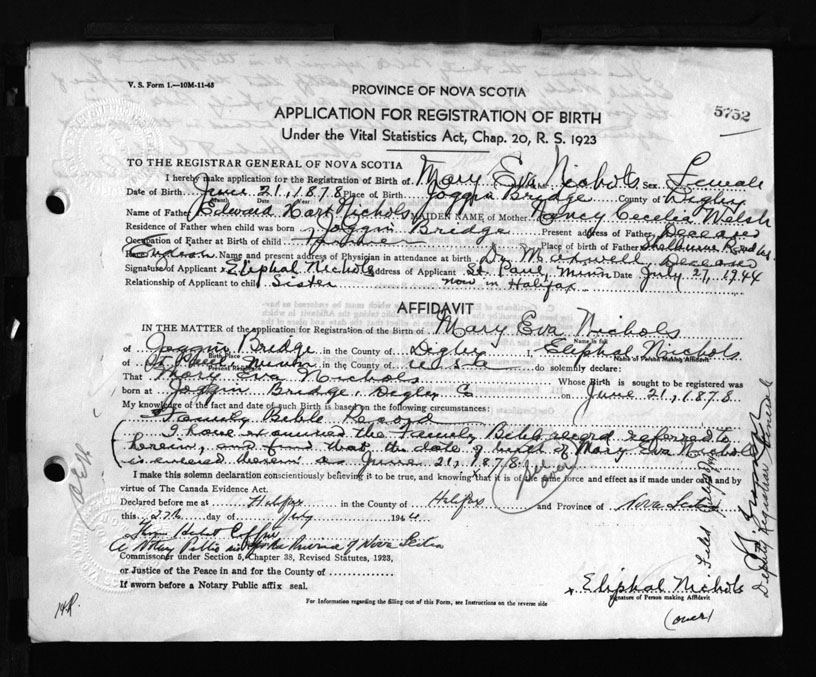 V. S. Form 1.—10M-11-45
PROVINCE OF NOVA SCOTIA
APPLICATION FOR REGISTRATION OF BIRTH
5752
Under the Vital Statistics Act, Chap. 20, R. S. 1923
TO THE REGISTRAR GENERAL OF NOVA SCOTIA
I hereby make application for the Registration of Birth of Mary Eva Nichols Sex Female
Date of Birth June 21, 1878 Place of Birth Joggin Bridge County of Digby
Name of Father Edward Hart Nichols MAIDEN NAME of Mother Nancy Cecelia Welsh
Residence of Father when child was born Joggin Bridge Present address of Father Deceased
Occupation of Father at Birth of child Farmer Place of Birth of Father Shelburne
Name and present address of Physician in attendance at birth Dr. Maxwell Deceased
Signature of Applicant x Eliphal Nichols Address of Applicant St. Paul, Minn Date July 27, 1944
Relationship of Applicant to child Sister now in Halifax
AFFIDAVIT
IN THE MATTER of the application for Registration of the Birth of Mary Eva Nichols
Name in full
of Joggin Bridge in the County of Digby I, Eliphal Nichols
Birth Place
Name of Person Making Affidavit
of St Paul Minn in the County of U S A do solemnly declare:
Present Residence
That Mary Eva Nichols Whose Birth is sought to be registered was
born at Joggin Bridge, Digby Co on June 21, 1878
My knowledge of the fact and date of such Birth is based on the following circumstances:
Family Bible Record
I have examined the Family Bible record referred to
herein, and find that the date of birth of Mary Eva Nichols
is entered therein as June 21, 1878.
I make this solemn declaration conscientiously believing it to be true, and knowing that it is of the same force and effect as if made under oath and by
virtue of The Canada Evidence Act.
Declared before me at Halifax in the County of Halifax and Province of Nova Scotia
this 27th day of July 1944
A Notary Public in and for the Province of Nova Scotia
Commissioner under Section 5, Chapter 38, Revised Statutes, 1923,
or Justice of the Peace in and for the County of
If sworn before a Notary Public affix seal.
x Eliphal Nichols
Signature of Person making Affidavit
For Information regarding the filling out of this Form, see Instructions on the reverse side
(over)
Deputy Registrar General